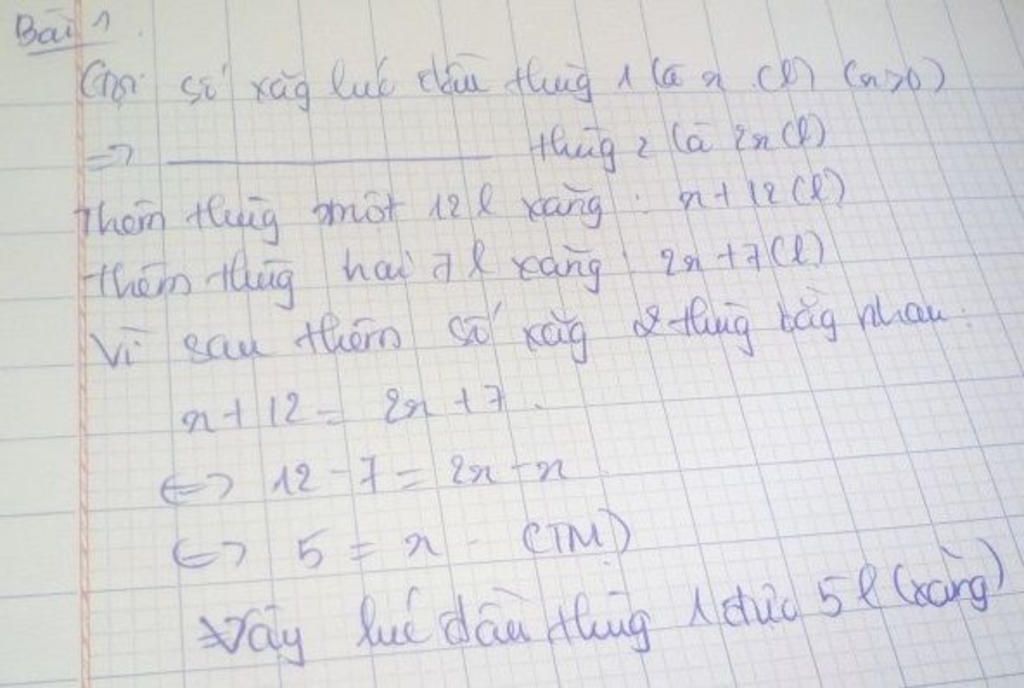 Bài 1.
Gọi số xăg lúc đầu thùg 1 là x (l) (x>0)
=> ———— thùg 2 là 2x (l)
Thêm thùg một 12 l xăng : x + 12 (l)
thêm thùg hai 7 l xăng : 2x + 7 (l)
Vì sau thêm số xăg 2 thùg bằg nhau :
x + 12 = 2x + 7 .
<=> 12 - 7 = 2x - x
<=> 5 = x . (TM)
Vậy lúc đầu thùg 1 đức 5 l (xăng)